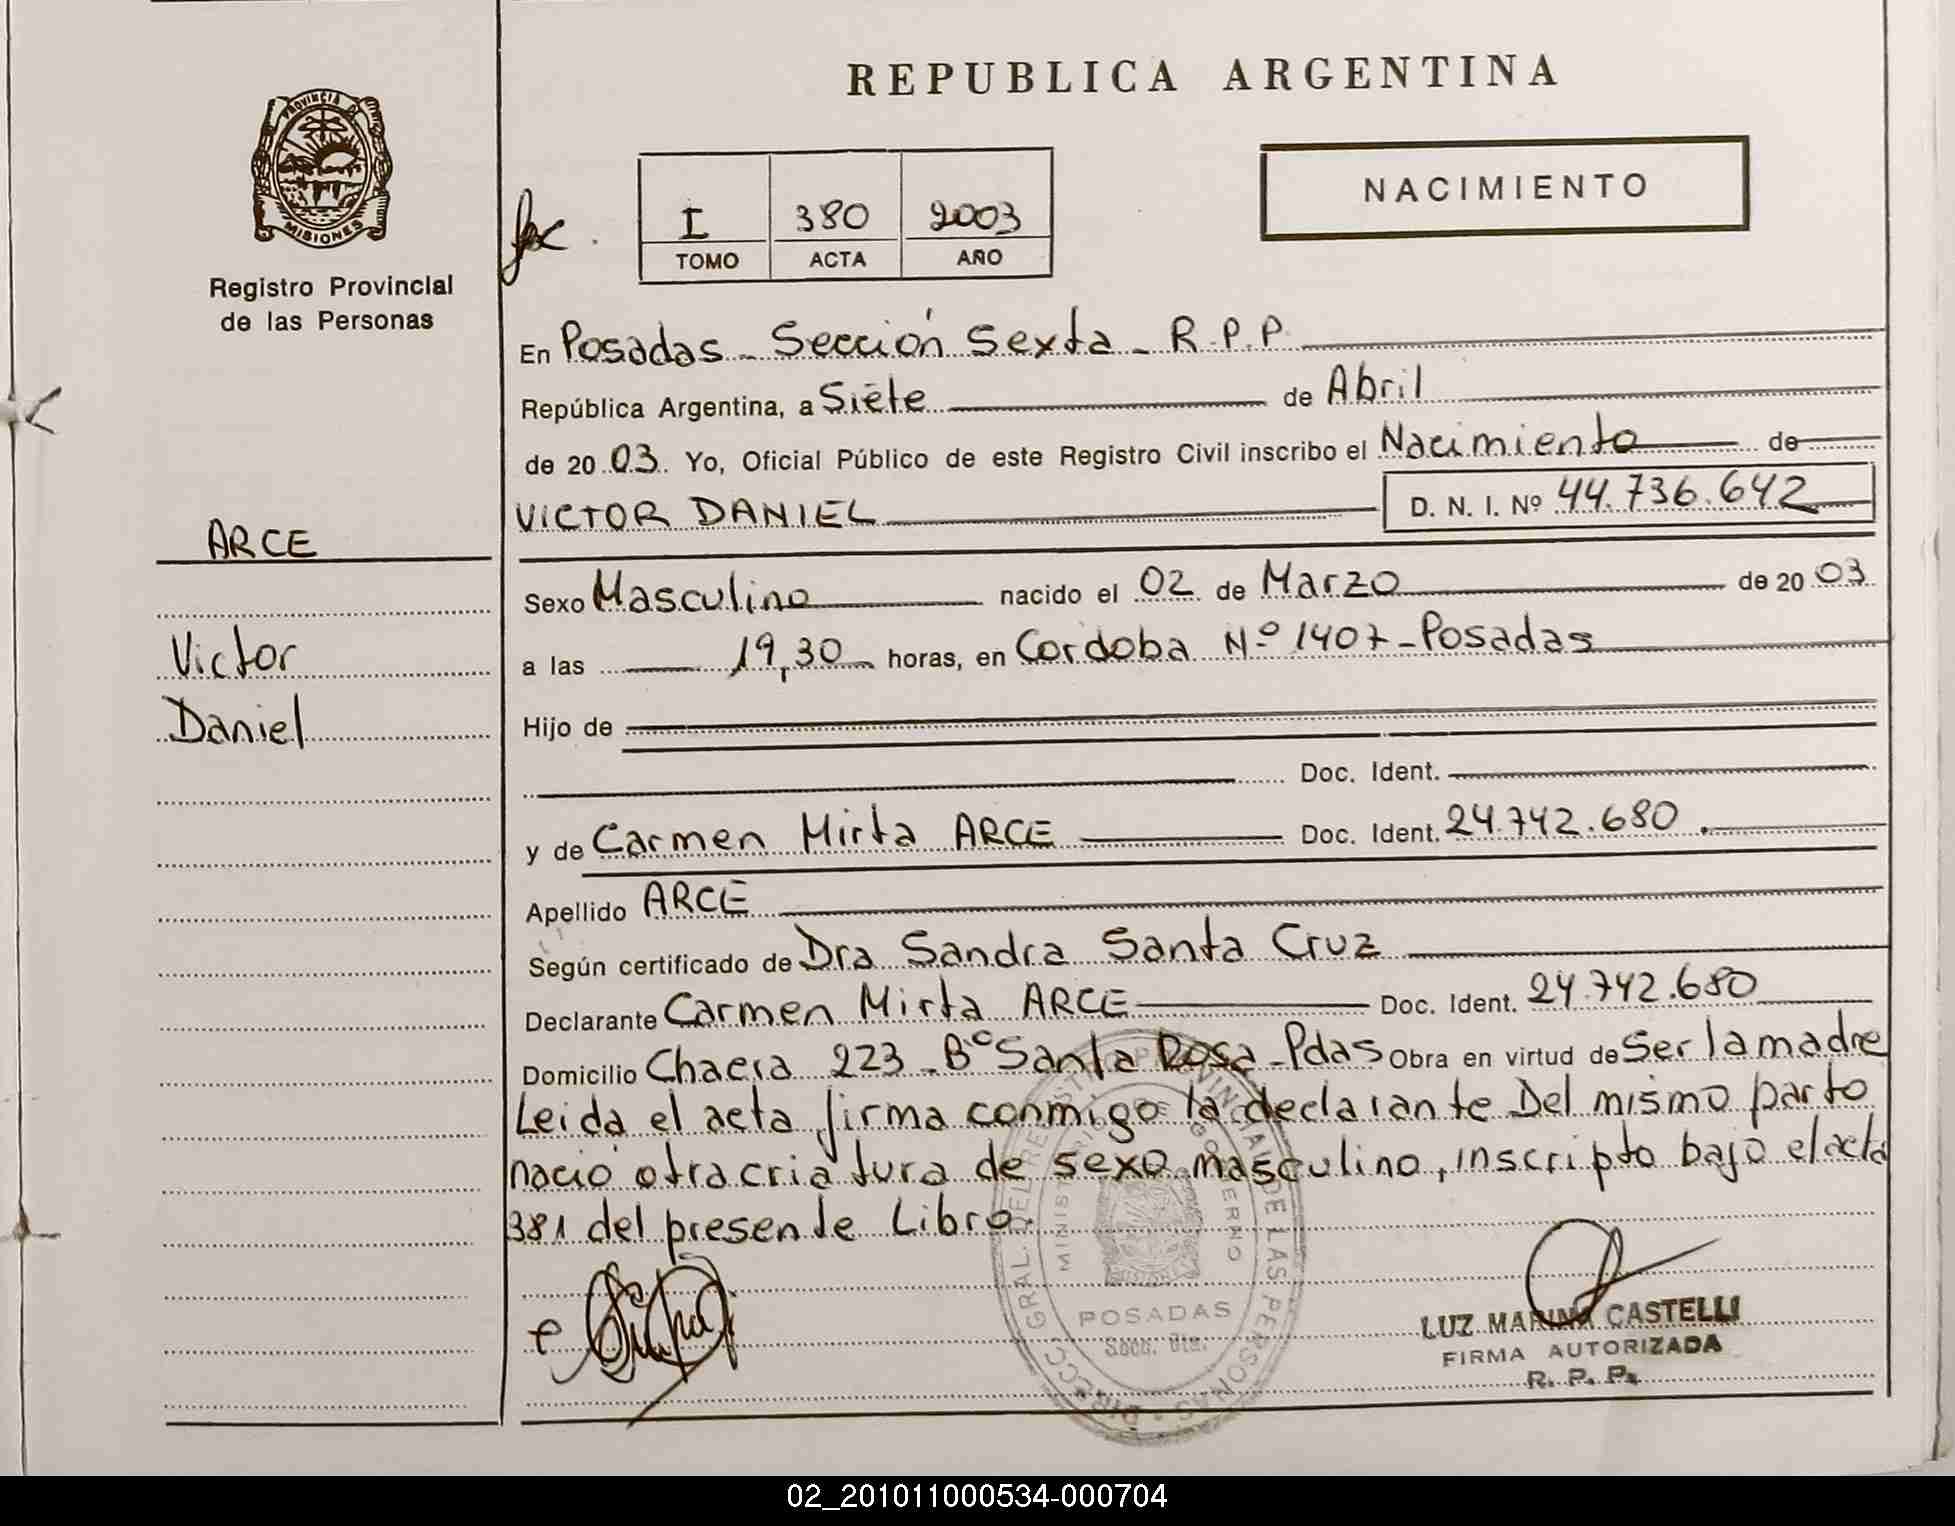 REPUBLICA ARGENTINA
PROVINCIA DE
MISIONES
Registro Provincial
de las Personas
NACIMIENTO
I 380 2003
TOMO ACTA AÑO
En Posadas - Sección Sexta - R.P.P.
República Argentina, a Siete de Abril
de 2003. Yo, Oficial Público de este Registro Civil inscribo el Nacimiento de
VICTOR DANIEL D. N. I. Nº 44.736.642
ARCE
Victor
Daniel
Sexo Masculino nacido el 02 de Marzo de 2003
a las 19,30 horas, en Cordoba Nº 1407 - Posadas
Hijo de
Doc. Ident.
y de Carmen Mirta ARCE Doc. Ident. 24.742.680.
Apellido ARCE
Según certificado de Dra Sandra Santa Cruz
Declarante Carmen Mirta ARCE Doc. Ident. 24.742.680
Domicilio 223 - Bº Santa Rosa - Pdas Obra en virtud de Ser la madre
Leida el acta firma conmigo la declarante Del mismo parto
nació otra criatura de sexo masculino, inscripto bajo el acta
381 del presente Libro.
DIRECC. GRAL. DEL REGISTRO PROVINCIAL DE LAS PERSONAS
MINISTERIO DE GOBIERNO
POSADAS
Secc. 6ta.
LUZ MARINA CASTELLI
FIRMA AUTORIZADA
R. P. P.
02_201011000534-000704